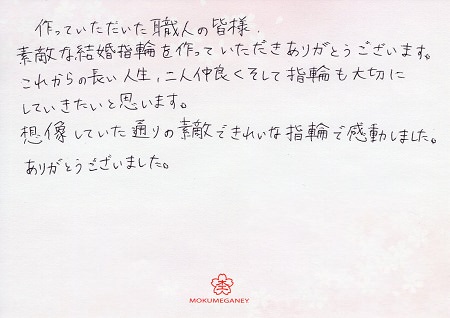 作っていただいた職人の皆様.
素敵な結婚指輪を作っていただきありがとうございます。
これからの長い人生,二人仲良くそして指輪も大切に
していきたいと思います。
想像していた通りの素敵できれいな指輪で感動しました。
ありがとうございました。
MOKUMEGANEY